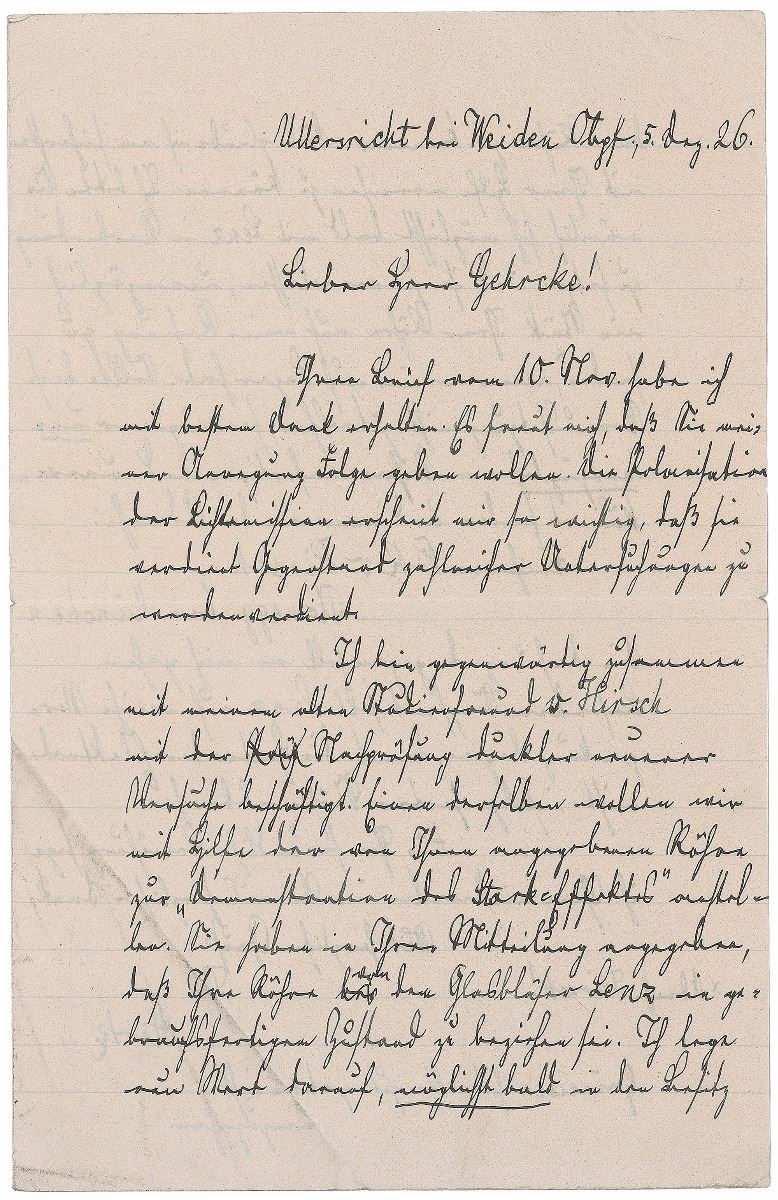 Ullersricht bei Weiden Obpf., 5. Dez. 26.
Lieber Herr Gehrcke!
Ihren Brief vom 10. Nov. habe ich
mit bestem Dank erhalten. Es freut mich, daß Sie mei-
ner Anregung Folge geben wollen. Die Polarisation
der Lichtemission erscheint mir so wichtig, daß sie
verdient Gegenstand zahlreicher Untersuchungen zu
werden verdient.
Ich bin gegenwärtig zusammen
mit meinem alten Studienfreund v. Hirsch
mit der Nachprüfung dunkler neuerer
Versuche beschäftigt. Einen derselben wollen wir
mit Hilfe der von Ihnen angegebenen Röhre
zur „Demonstration des Starkeffektes" anstel-
len. Sie haben in Ihrer Mitteilung angegeben,
daß Ihre Röhre von dem Glasbläser Lenz in ge-
brauchsfertigem Zustand zu beziehen sei. Ich lege
nun Wert darauf, möglichst bald in den Besitz